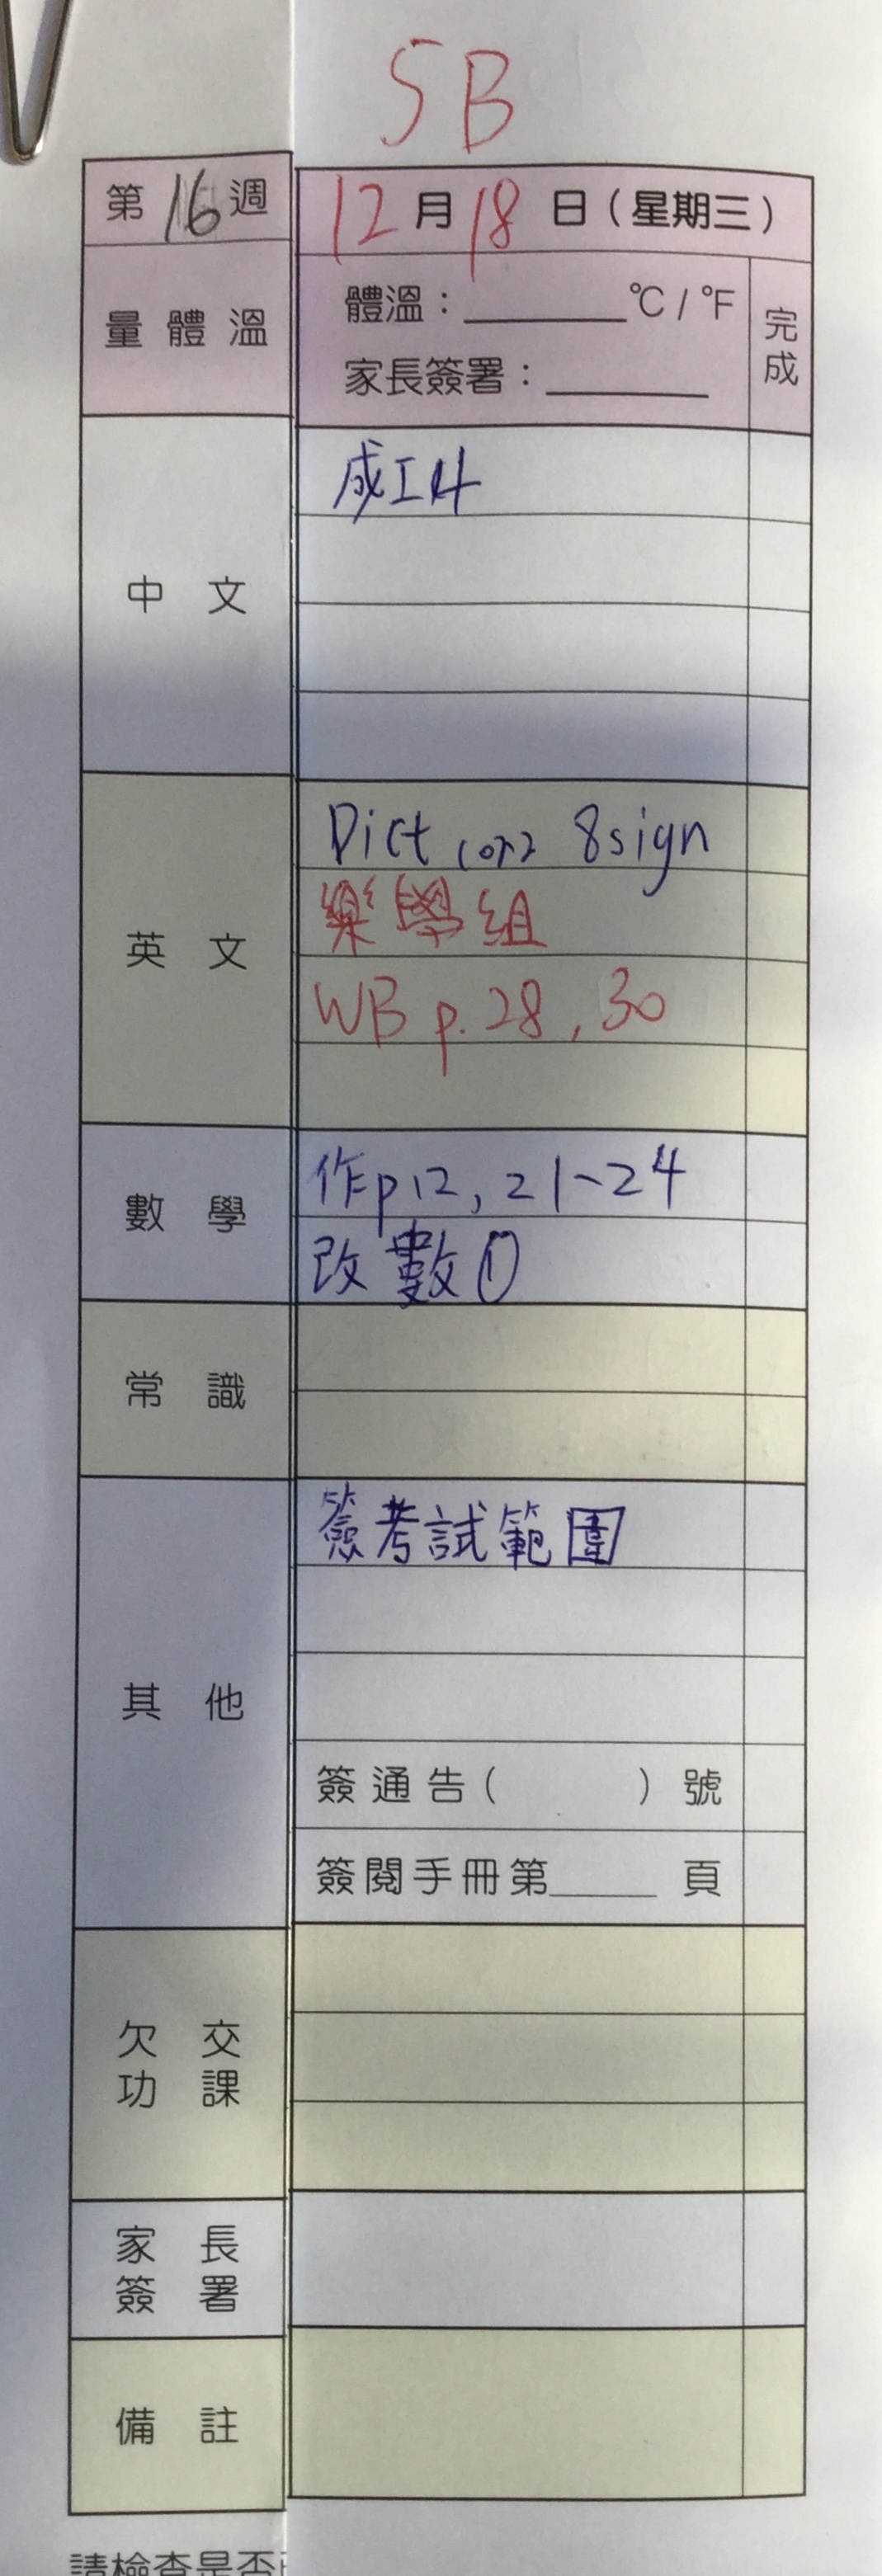 5B
第16週
12月18日(星期三)
量體溫
體溫:______℃/℉
家長簽署:______
完成
中文
成工4
英文
Dict corr 8 sign
樂學組
WB p.28,30
數學
作p12,21~24
改數①
常識
其他
簽考試範圍
簽通告( )號
簽閱手冊第_____頁
欠交功課
家長簽署
備註
請檢查是否